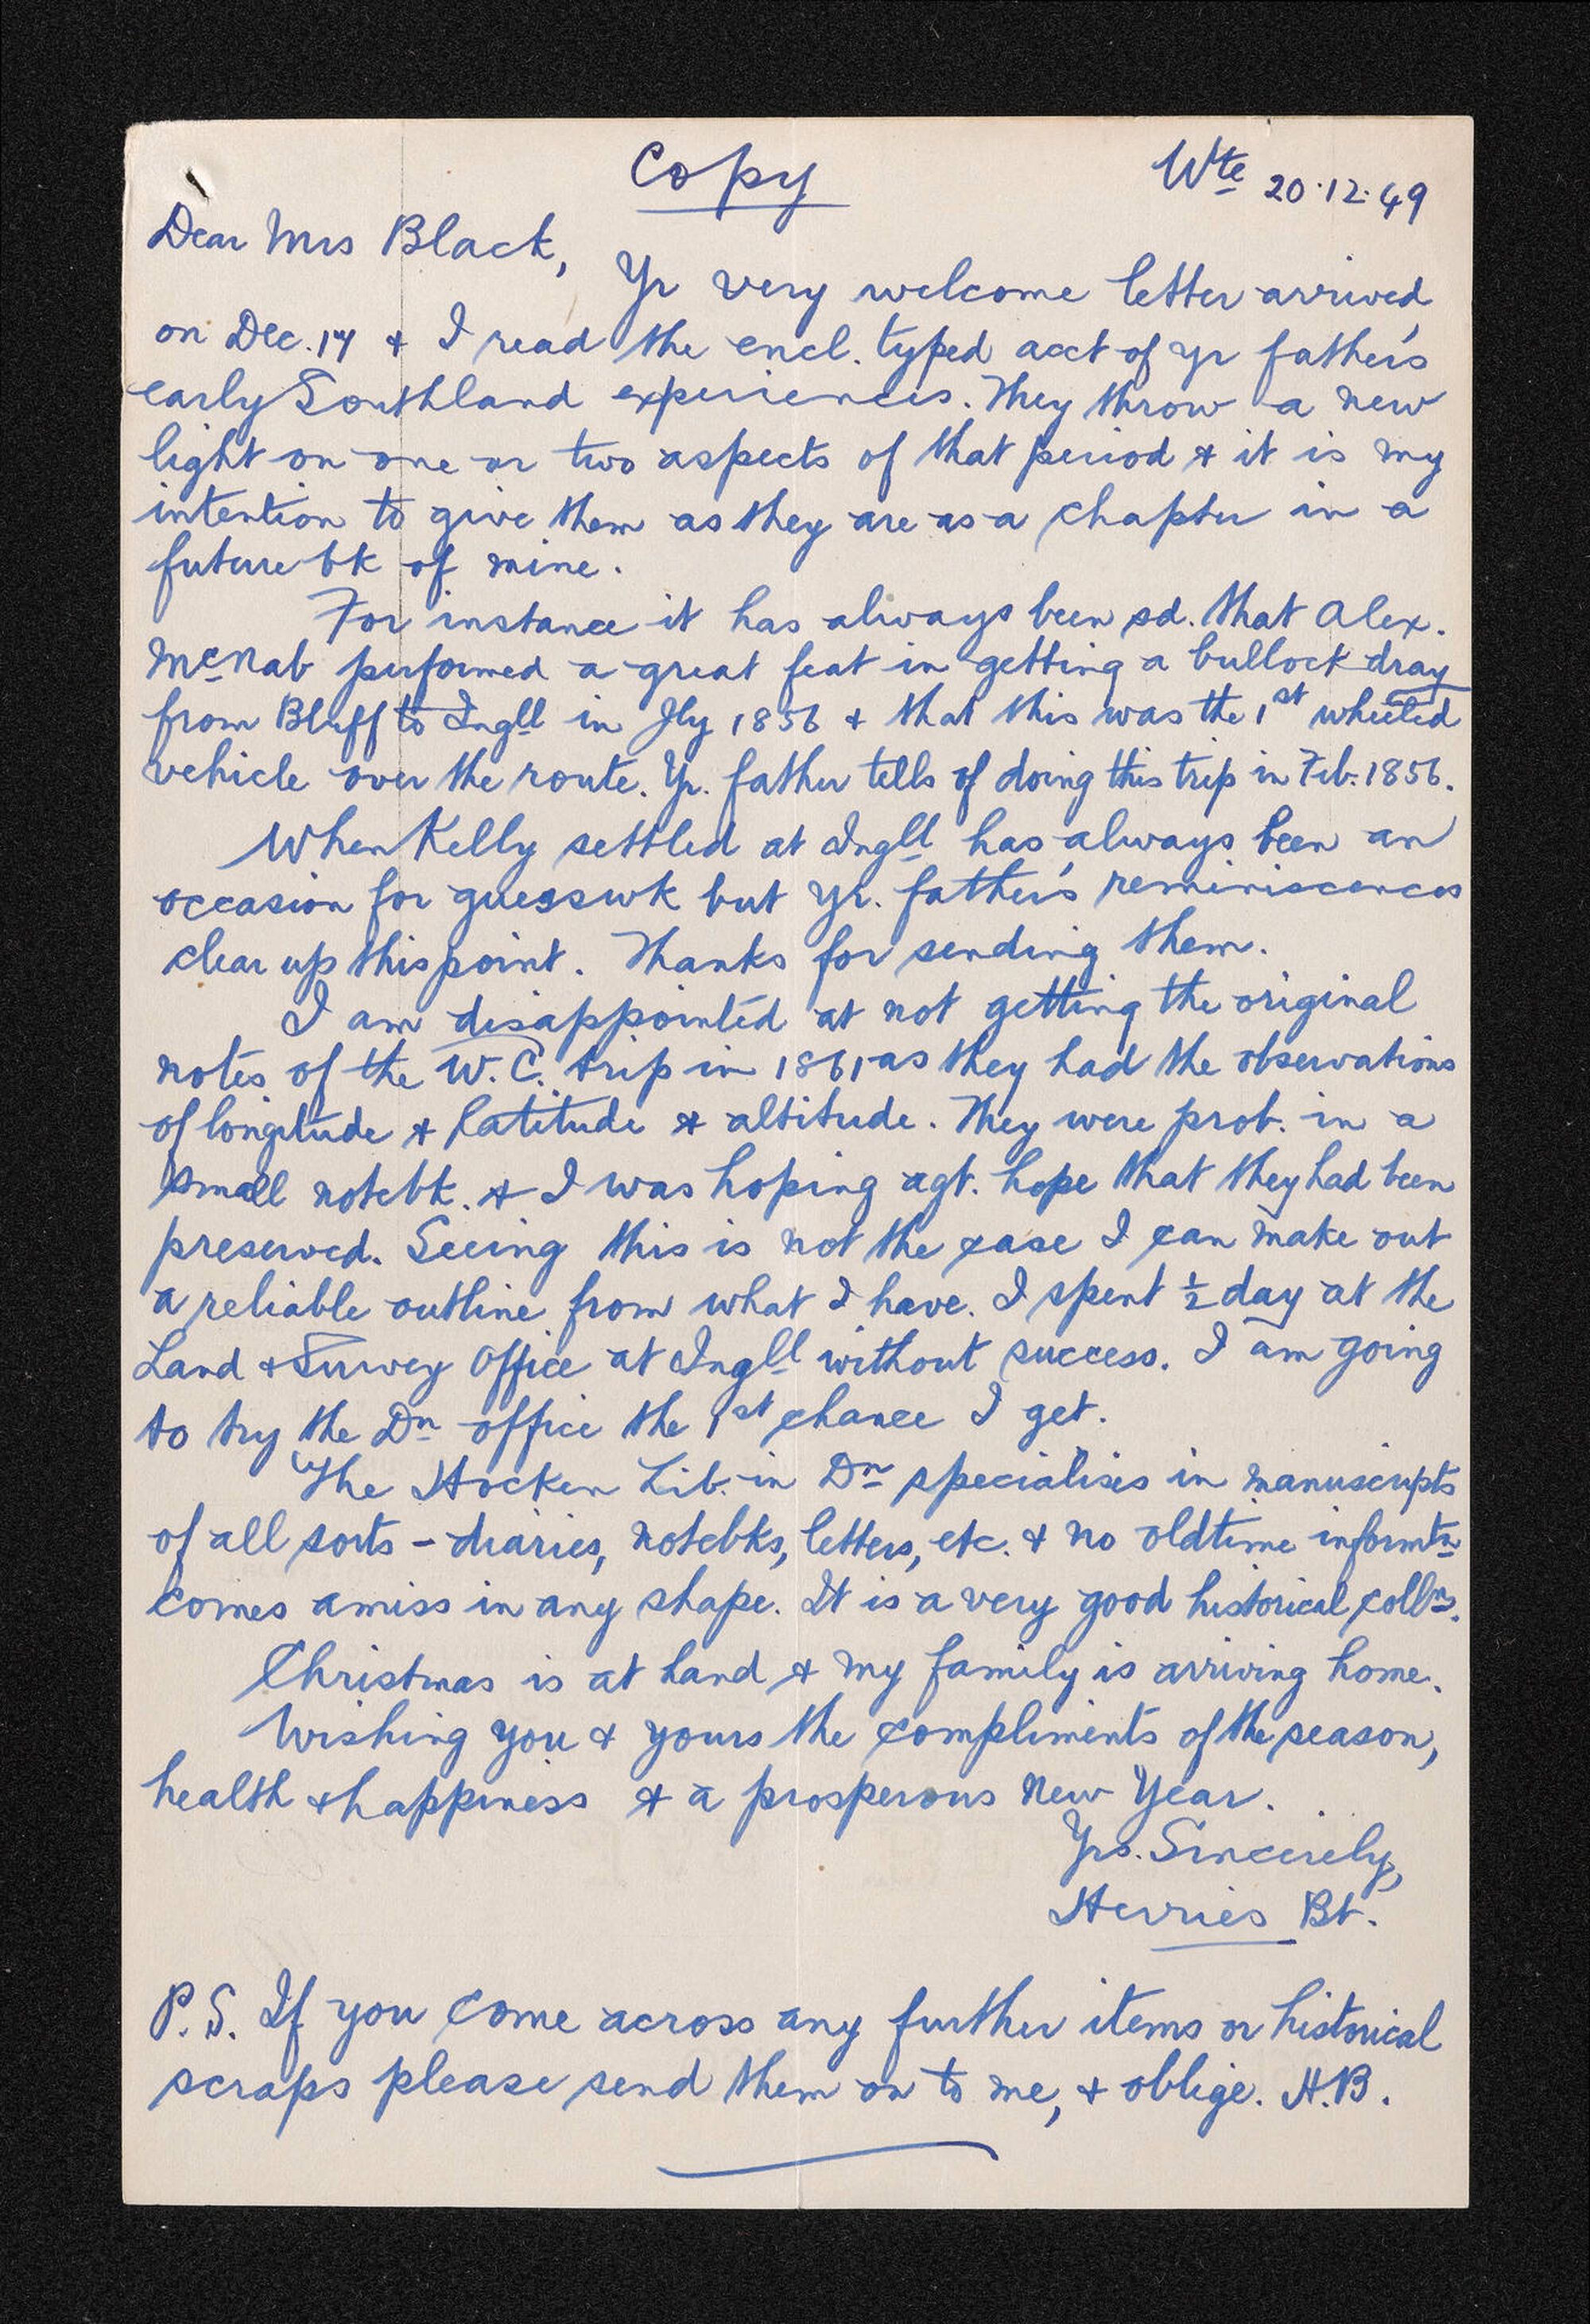 Copy
Wte 20.12.49
Dear Mrs Black,
Yr very welcome letter arrived
on Dec. 14 & I read the encl. typed acct of yr father's
early Southland experiences. They throw a new
light on one or two aspects of that period & it is my
intention to give them as they are as a chapter in a
future bk of mine.
For instance it has always been sd. that Alex.
McNab performed a great feat in getting a bullock dray
from Bluff to Ingll in Jly 1856 & that this was the 1st wheeled
vehicle over the route. Yr. father tells of doing this trip in Feb. 1856.
When Kelly settled at Ingll has always been an
occasion for guesswk but yr. father's reminiscences
clear up this point. Thanks for sending them.
I am disappointed at not getting the original
notes of the W.C. trip in 1861 as they had the observations
of longitude & latitude & altitude. They were prob. in a
small notebk. & I was hoping agt. hope that they had been
preserved. Seeing this is not the case I can make out
a reliable outline from what I have. I spent ½ day at the
Land & Survey Office at Ingll without success. I am going
to try the Dn office the 1st chance I get.
The Hocken Lib. in Dn specialises in manuscripts
of all sorts - diaries, notebks, letters, etc. & no oldtime informtn
comes amiss in any shape. It is a very good historical colln.
Christmas is at hand & my family is arriving home.
Wishing you & yours the compliments of the season,
health & happiness & a prosperous New Year.
Yrs. Sincerely,
Herries Bt.
P.S. If you come across any further items or historical
scraps please send them on to me, & oblige. H.B.